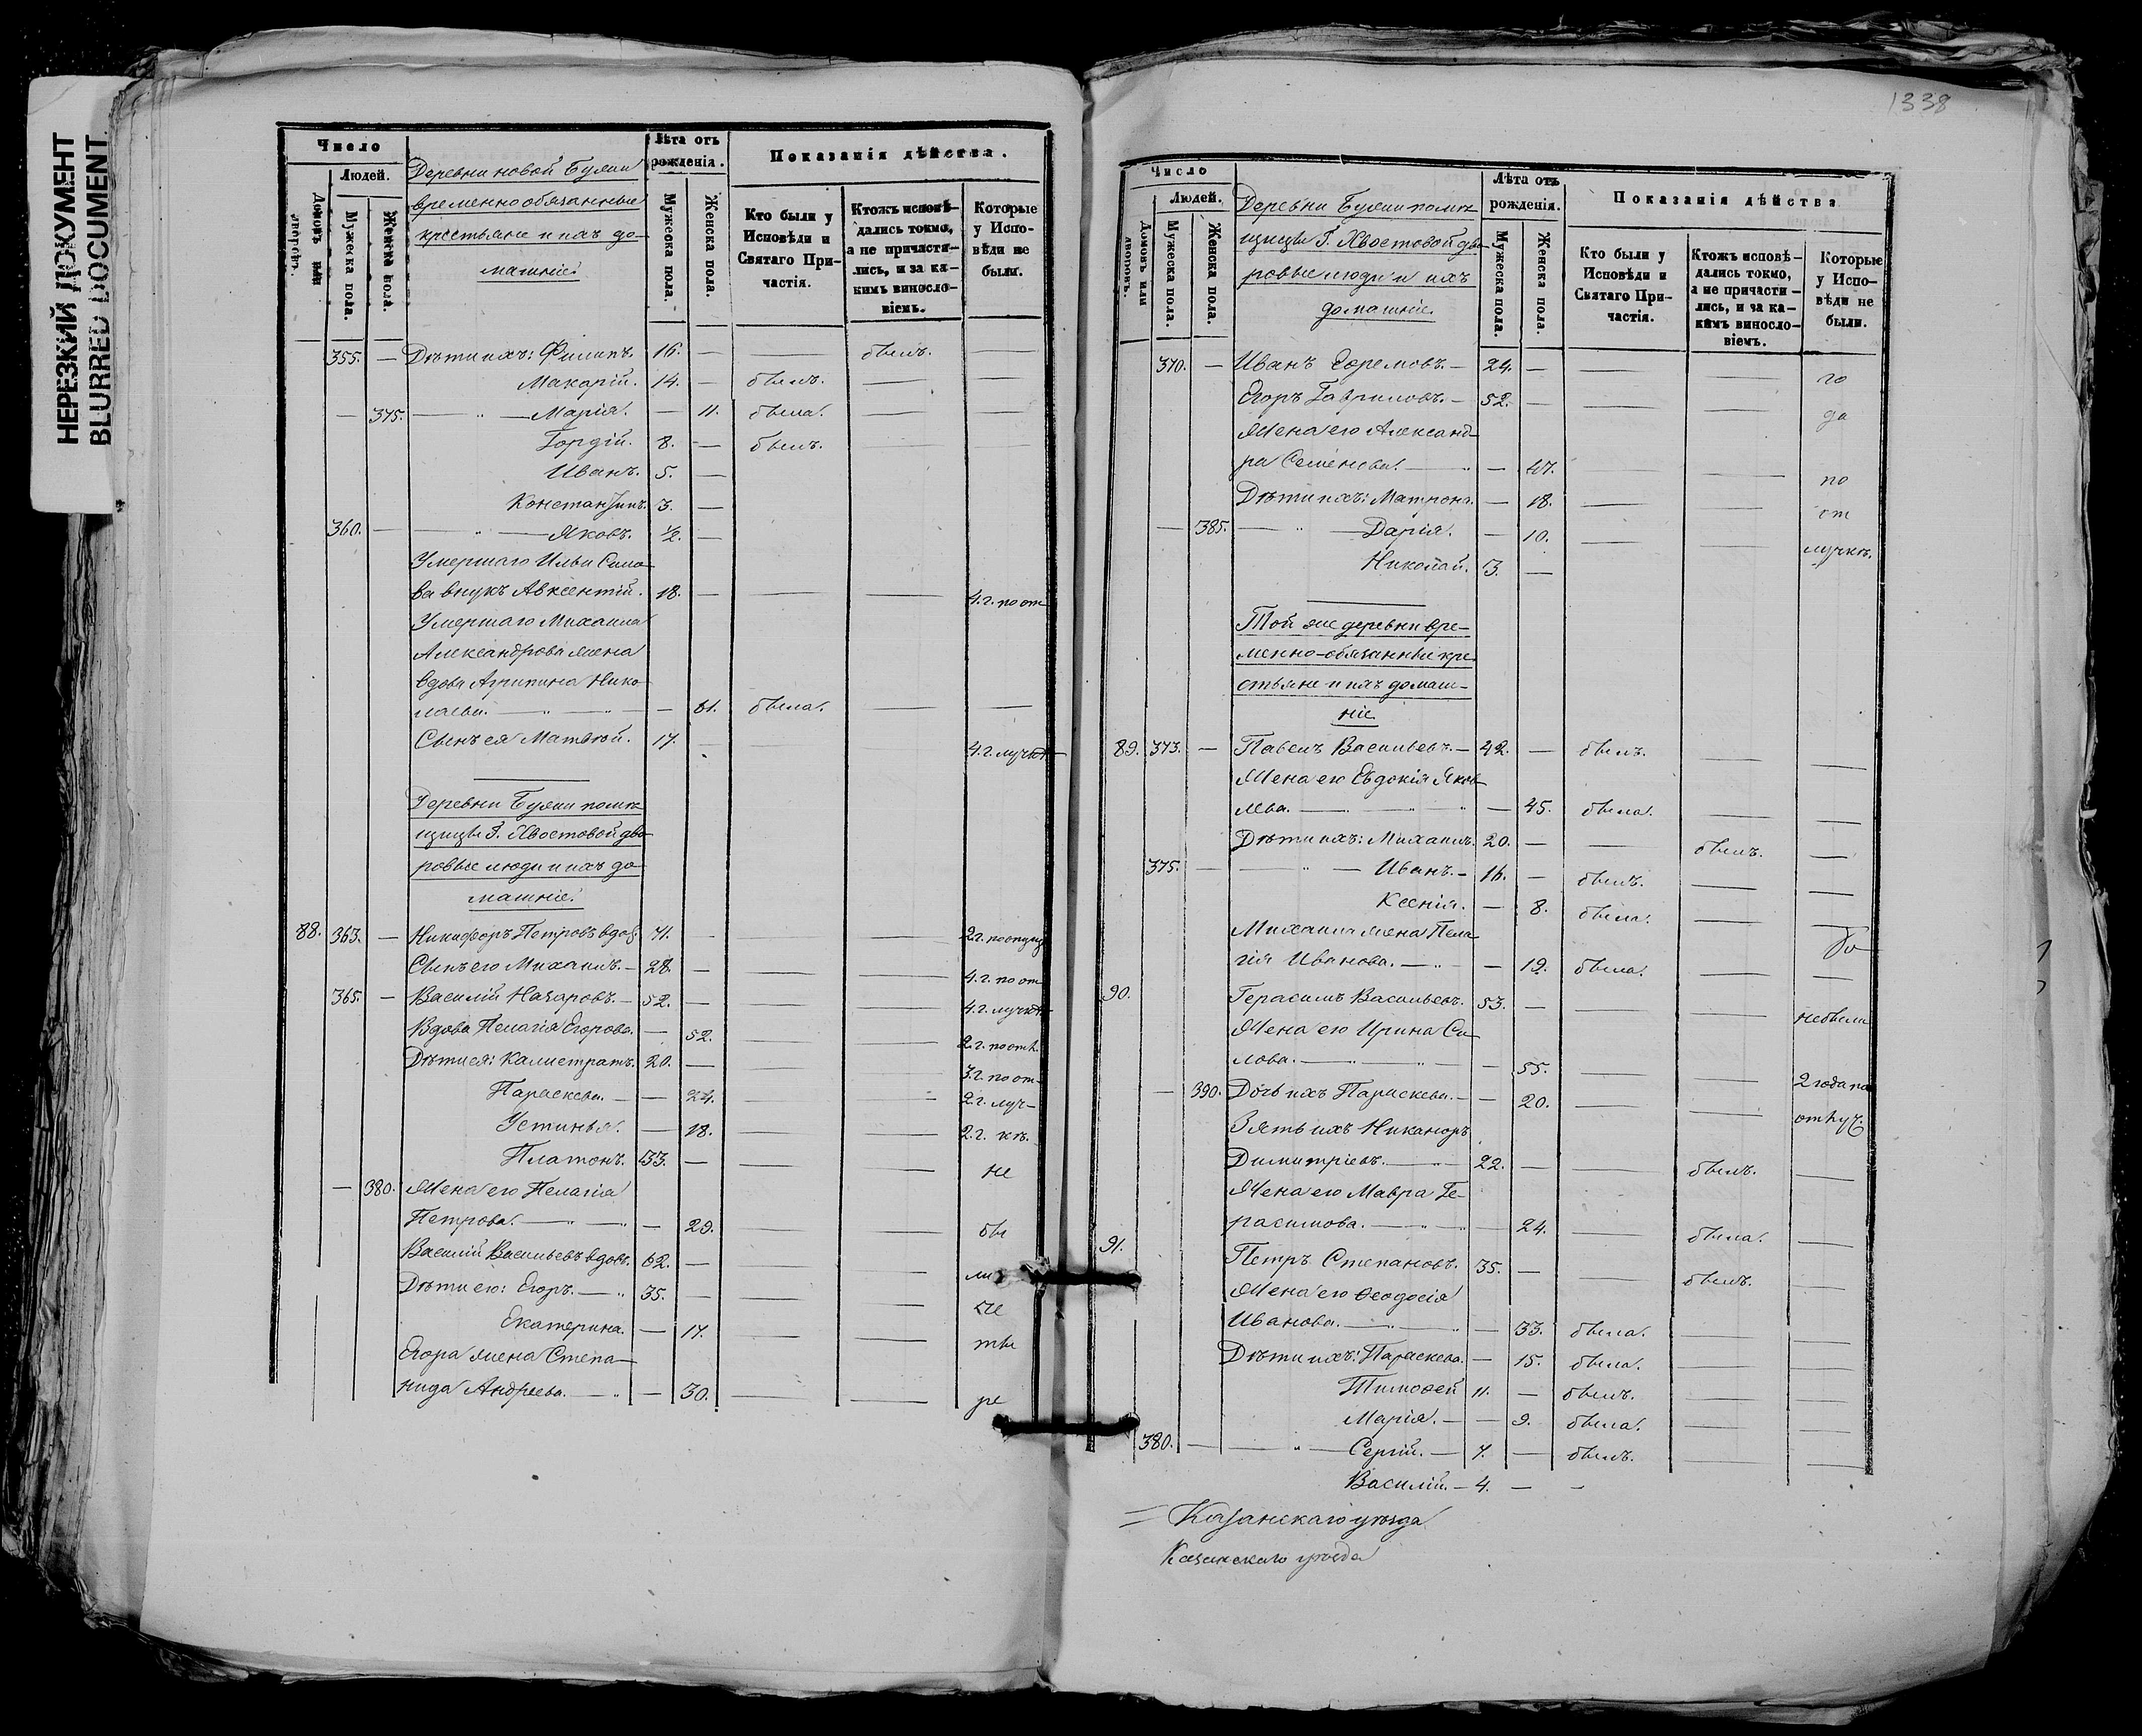 НЕРЕЗКИЙ ДОКУМЕНТ
BLURRED DOCUMENT
Число
Людей.
Домовъ или дворовъ.
Мужеска пола.
Женска пола.
Деревни новой Бужи
временнообязанные
крестьяне и ихъ до-
машніе.
Лѣта отъ рожденія.
Мужеска пола.
Женска пола.
Показанія дѣйства.
Кто были у Исповѣди и Святаго При-частія.
Ктожъ исповѣ-дались токмо, а не причасти-лись, и за ка-кимъ винословіемъ.
Которые у Испо-вѣди не были.
355. — Дѣти ихъ: Филипъ. 16. — — былъ.
Макарій. 14. — былъ. —
— 375. — " — Марія. — 11. была. —
Гордій. 8. — былъ. — —
Иванъ. 5. —
Константинъ. 3. —
360. — — " — Яковъ. ½. —
Умершаго Ильи Сило-
ва внукъ Авксентій. 18. — — — 4.г. по от
Умершаго Михаила
Александрова жена
вдова Агрипина Нико-
лаева. — " — " — — 61. была. — —
Сынъ ея Матвей. 17. — — — 4.г. лучкѣ
Деревни Бужи помѣ
щицы Г. Хвостовой дво-
ровые люди и ихъ до-
машніе.
88. 363. — Никифоръ Петровъ вдов. 71. — — — 2г. по опущ
Сынъ его Михаилъ. — 28. — — — 4.г. по от
365. — Василій Назаровъ. — 52. — — — 4.г. лучкѣ
Вдова Пелагія Егорова. — 52. — — 2.г. по отл.
Дѣти ея: Калистратъ. 20. — — — 3.г. по от-
Параскева. — — 24. — — 2.г. луч-
Устинья. — 18. — — 2.г. кѣ.
Платонъ. 33. — — — не
— 380. Жена его Пелагія
Петрова. — " — " — 29. — — бы
Василій Васильевъ вдов. 62. — — — ли
Дѣти его: Егоръ. — " 35. — — — че
Екатерина. — 17. — — ты
Егора жена Степа-
нида Андреева. — " — 30. — — ре
1338
Число
Людей.
Домовъ или дворовъ.
Мужеска пола.
Женска пола.
Деревни Бужи помѣ
щицы Г. Хвостовой дво
ровые люди и ихъ
домашніе.
Лѣта отъ рожденія.
Мужеска пола.
Женска пола.
Показанія дѣйства
Кто были у Исповѣди и Святаго При-частія.
Ктожъ исповѣ-дались токмо, а не причасти-лись, и за ка-кимъ винословіемъ.
Которые у Испо-вѣди не были.
370. — Иванъ Ефремовъ. — 24. — — — го
Егоръ Гавриловъ. — 52. — — — да
Жена его Александ-
ра Семенова. — " — 47. — — по
Дѣти ихъ: Матрона. — 18. — — от
— 385. — " — Дарія. — 10. — — лучкѣ.
Николай. 3. —
Той же деревни вре-
менно-обязанные кре
стьяне и ихъ домаш-
ніе.
89. 373. — Павелъ Васильевъ. — 42. — былъ. — —
Жена его Евдокія Яков
лева. — " — " — 45. была. — —
Дѣти ихъ: Михаилъ. 20. — — былъ. —
375. — — " — Иванъ. — 16. — былъ. — —
Ксенія. — 8. была. — —
Михаила жена Пела-
гія Иванова. — " — 19. была. — —
90. Герасимъ Васильевъ. 53. — — — не были
Жена его Ирина Си-
лова. — " — " — 55. — — 2 года по
— 390. Дочь ихъ Параскева. — — 20. — — отлуч.
Зять ихъ Никаноръ
Димитріевъ. — " — 22. — — былъ. —
Жена его Мавра Ге-
расимова. — " — " — 24. — была. —
91. Петръ Степановъ. 35. — — былъ. —
Жена его Ѳеодосія
Иванова. — " — " — 33. была. —
Дѣти ихъ: Параскева. — 15. была. — —
Тимоѳей 11. — былъ. — —
Марія. — — 9. была. — —
380. — — " — Сергій. — 7. — былъ. — —
Василій. — 4. — -
= Казанскаго уѣзда
Казанскаго уѣзда